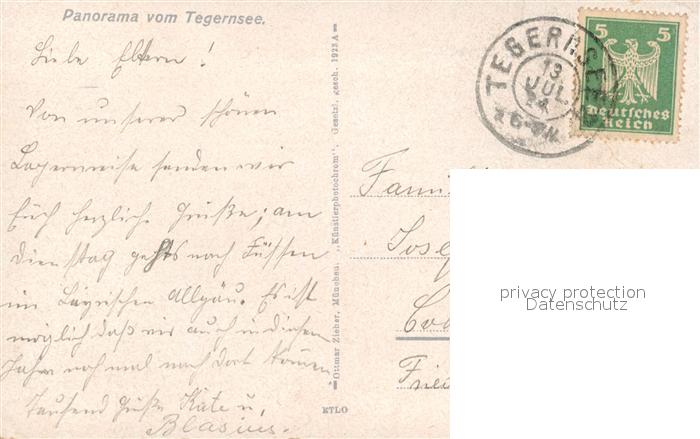 Panorama vom Tegernsee.
Liebe Eltern!
Von unserer schönen
senden wir
Euch herzliche Grüße; am
Dienstag gehts nach Füssen
im bayrischen Allgäu. Es ist
möglich daß wir auch in diesem
Jahre noch mal nach dort kommen
Tausend Grüße Käte u.
Blasius.
Ottmar Zieher, München. „Künstlerphotochrom“. Gesetzl. gesch. 1923 A
ETLO
TEGERNSEE
13
JUL.
24
5 5
Deutsches
Reich
Fami
Jose
Fried
privacy protection
Datenschutz